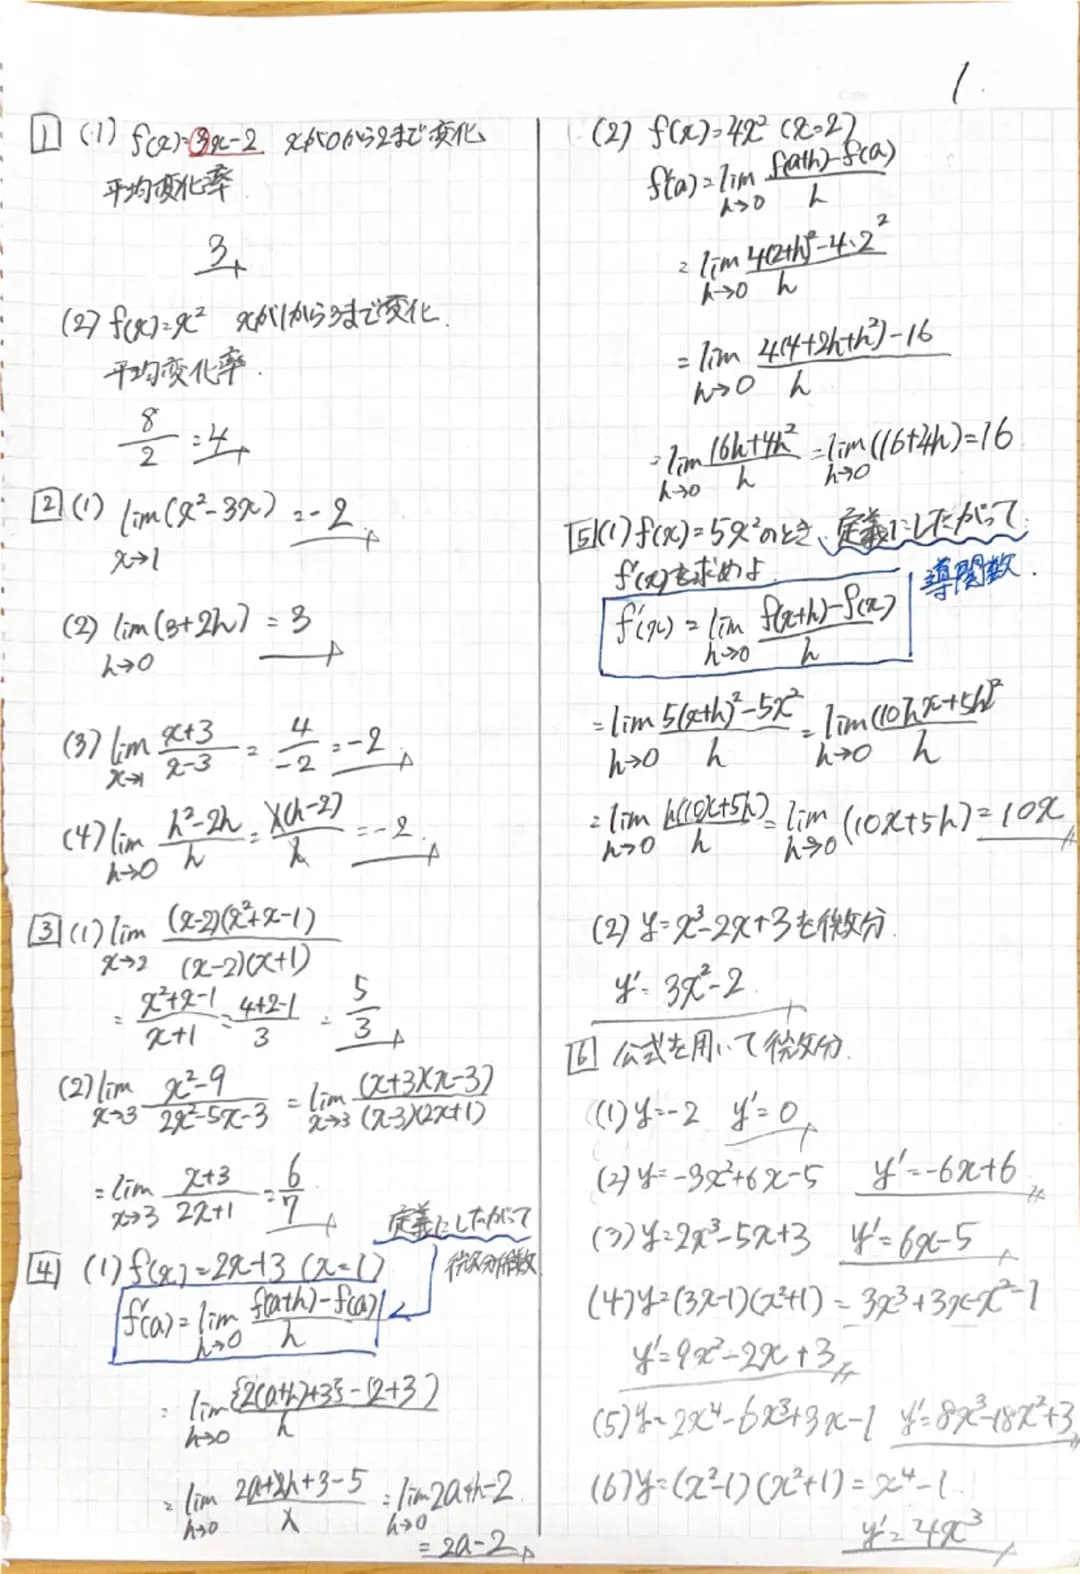 1.
1 (1) f(x)=3x-2 xが0から2まで変化
平均変化率
3
(2) f(x)=x² xが1から3まで変化.
平均変化率.
8/2 = 4
2 (1) lim(x²-3x) = -2
x→1
(2) lim(3+2h) = 3
h→0
(3) lim x+3/x-3 = 4/-2 = -2
x→1
(4) lim h²-2h/h = h(h-2)/h = -2
h→0
3 (1) lim (x-2)(x²+x-1)/(x-2)(x+1)
x→2
= x²+x-1/x+1 = 4+2-1/3 = 5/3
(2) lim x²-9/2x²-5x-3 = lim (x+3)(x-3)/(x-3)(2x+1)
x→3 x→3
= lim x+3/2x+1 = 6/7
x→3
定義にしたがって
微分係数
4 (1) f(x)=2x+3 (x=1)
f'(a)=lim f(a+h)-f(a)/h
h→0
= lim {2(a+h)+3}-(2+3)/h
h→0
= lim 2a+2h+3-5/h = lim 2a+h-2
h→0 h→0
= 2a-2
(2) f(x)=4x² (x=2)
f'(a)=lim f(a+h)-f(a)/h
h→0
= lim 4(2+h)²-4・2²/h
h→0
= lim 4(4+2h+h²)-16/h
h→0
= lim 16h+4h²/h = lim(16+4h)=16
h→0 h→0
5 (1) f(x)=5x²のとき、定義にしたがって
f'(x)を求めよ
導関数.
f'(x) = lim f(x+h)-f(x)/h
h→0
= lim 5(x+h)²-5x²/h = lim (10hx+5h)²/h
h→0 h→0
= lim h(10x+5h)/h = lim (10x+5h) = 10x
h→0 h→0
(2) y=x³-2x+3を微分.
y'=3x²-2
6 公式を用いて微分.
(1) y=-2 y'=0
(2) y=-3x²+6x-5 y'=-6x+6
(3) y=2x³-5x+3 y'=6x-5
(4) y=(3x-1)(x²+1) = 3x³+3x-x²-1
y'=9x²-2x+3
(5) y=2x⁴-6x³+3x-1 y'=8x³-18x²+3
(6) y=(x²-1)(x²+1) = x⁴-1.
y'=4x³